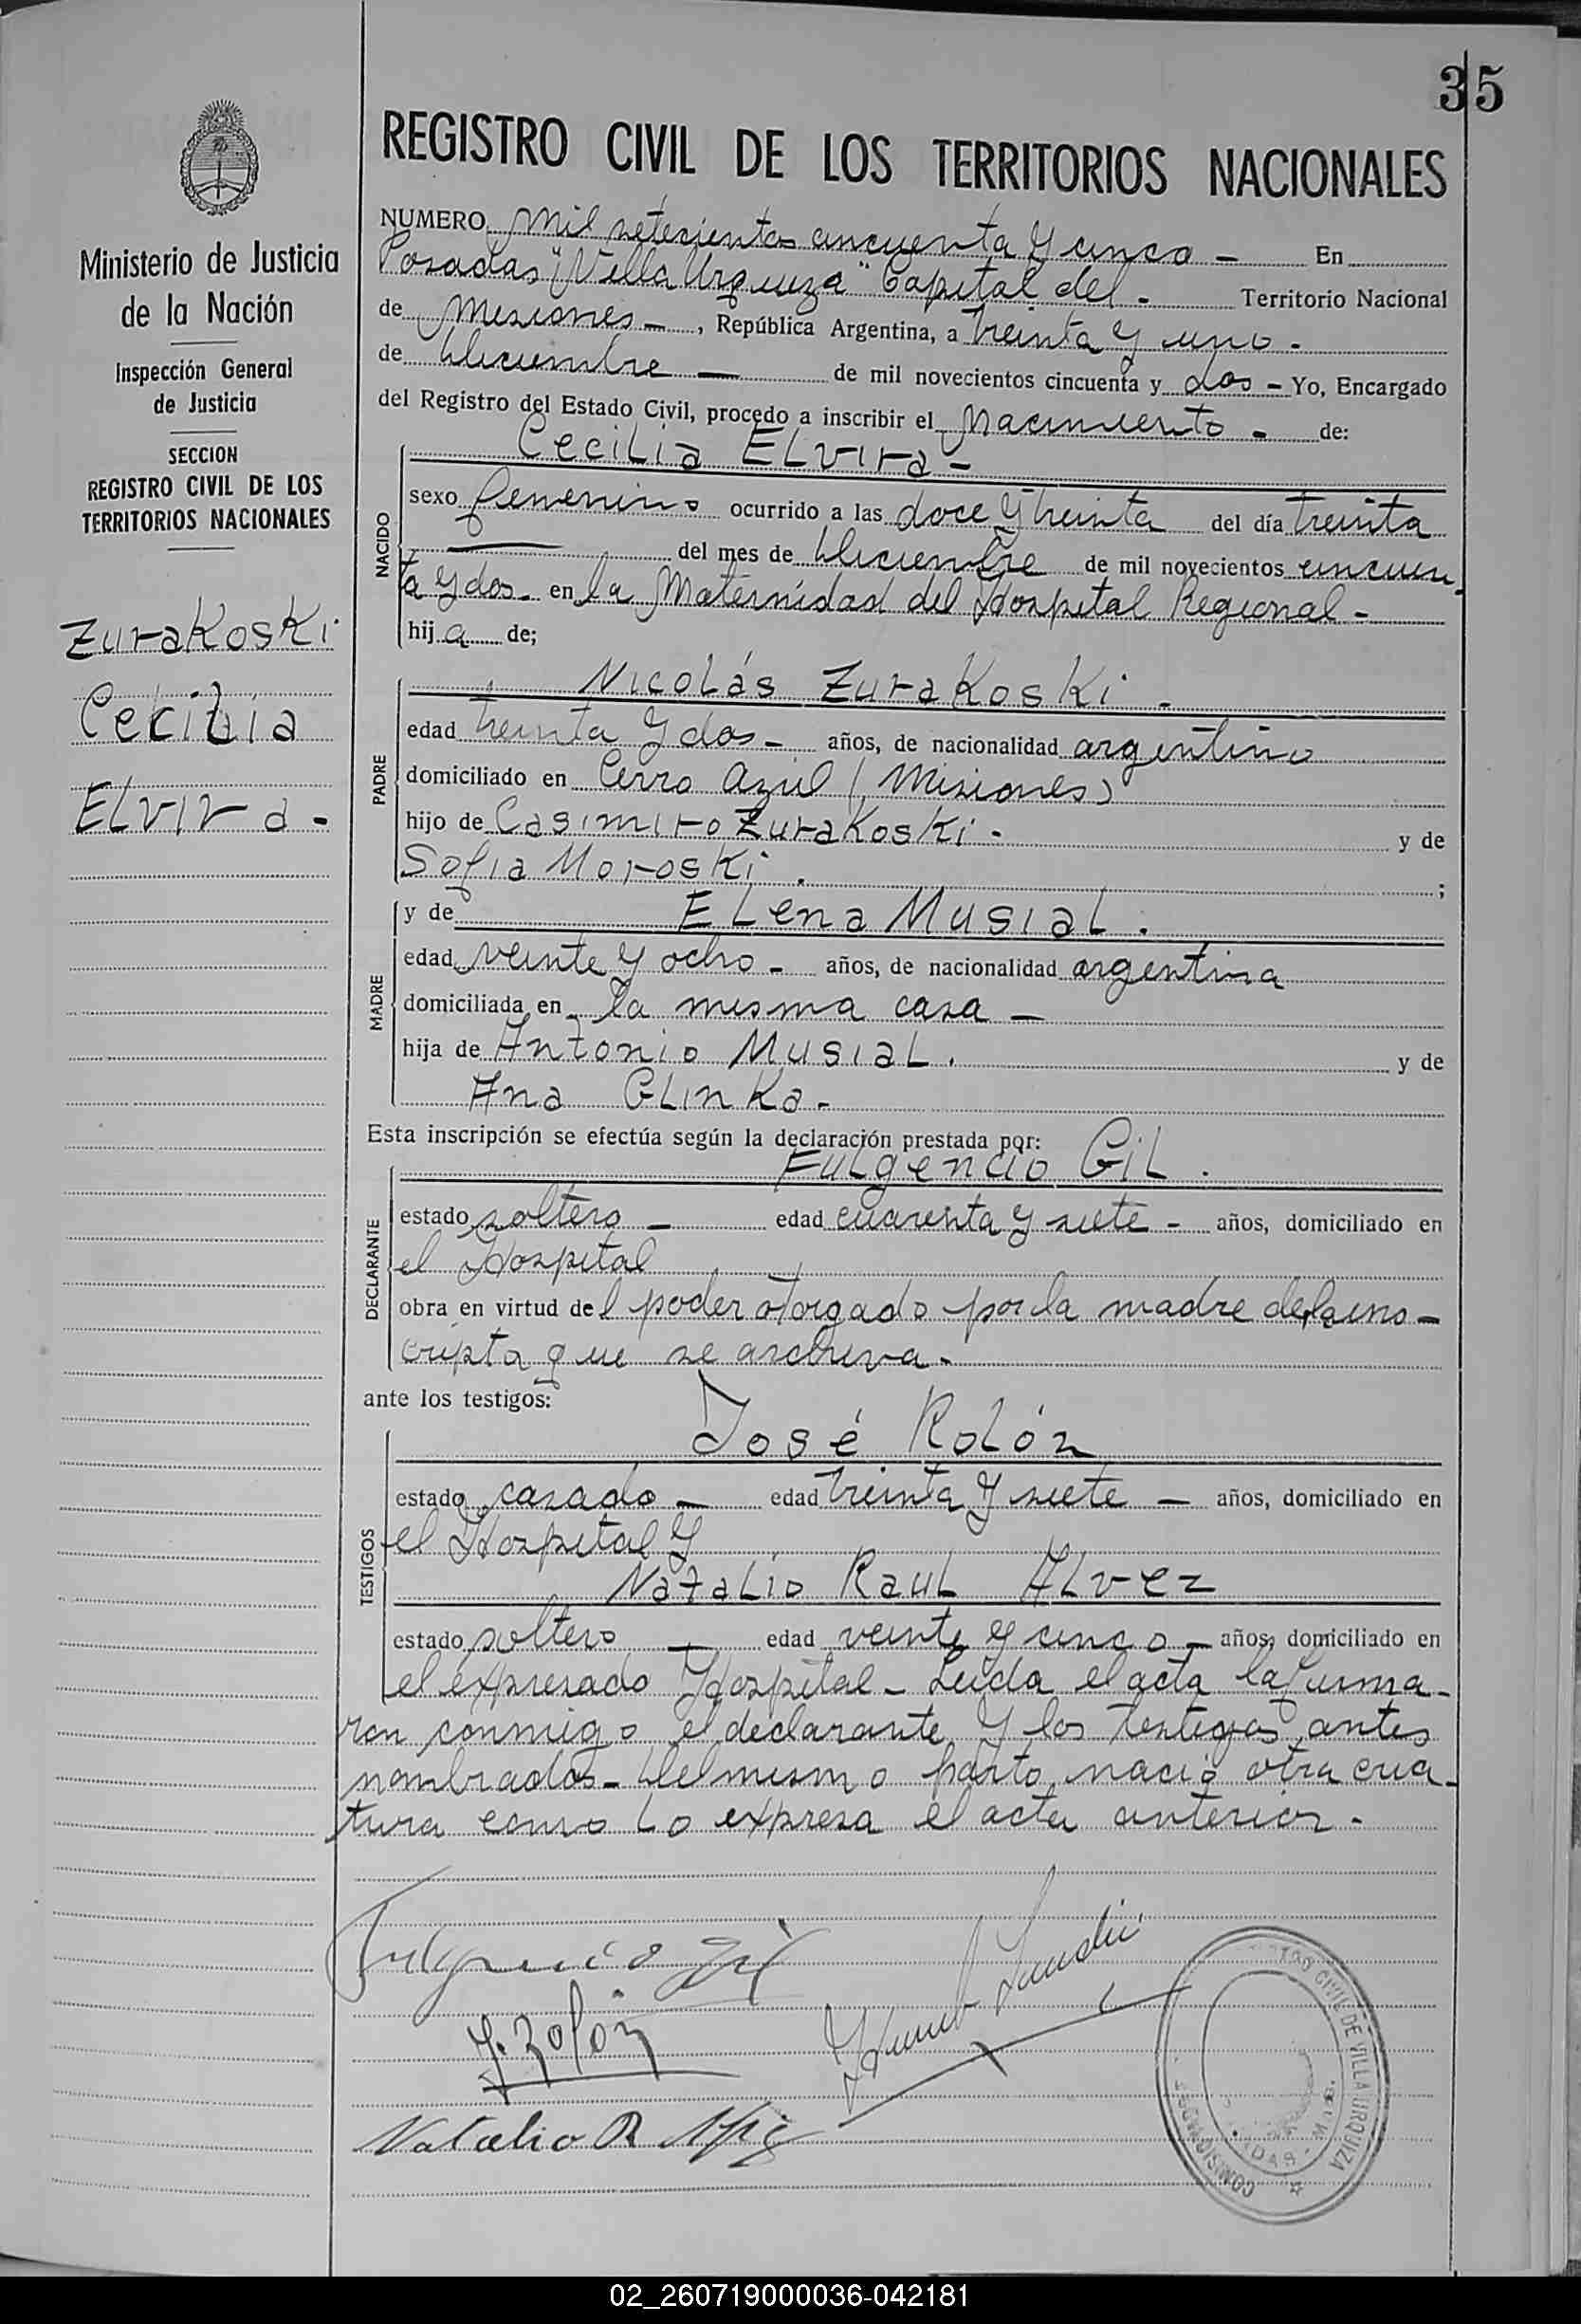 35
REGISTRO CIVIL DE LOS TERRITORIOS NACIONALES
Ministerio de Justicia
de la Nación
Inspección General
de Justicia
SECCION
REGISTRO CIVIL DE LOS
TERRITORIOS NACIONALES
Zurakoski
Cecilia
Elvira -
NUMERO Mil setecientos cincuenta y cinco - En
Posadas "Villa Urquiza" Capital del - Territorio Nacional
de Misiones -, República Argentina, a treinta y uno -
de Diciembre - de mil novecientos cincuenta y dos - Yo, Encargado
del Registro del Estado Civil, procedo a inscribir el Nacimiento - de:
NACIDO
Cecilia Elvira -
sexo femenino ocurrido a las doce y treinta del día treinta
— del mes de Diciembre de mil novecientos cincuen
ta y dos - en la Maternidad del Hospital Regional -
hija de;
PADRE
Nicolás Zurakoski -
edad treinta y dos - años, de nacionalidad argentino
domiciliado en Cerro Azul (Misiones)
hijo de Casimiro Zurakoski - y de
Sofia Moroski . ;
MADRE
y de Elena Musial .
edad veinte y ocho - años, de nacionalidad argentina
domiciliada en la misma casa -
hija de Antonio Musial . y de
Ana Glinka -
Esta inscripción se efectúa según la declaración prestada por:
DECLARANTE
Fulgencio Gil .
estado soltero - edad cuarenta y siete - años, domiciliado en
el Hospital
obra en virtud del poder otorgado por la madre de la ins-
cripta que se archiva -
ante los testigos:
TESTIGOS
José Rolón
estado casado - edad treinta y siete - años, domiciliado en
el Hospital y
Natalio Raul Alvez
estado soltero - edad veinte y cinco - años, domiciliado en
el expresado Hospital - Leida el acta la firma-
ron conmigo el declarante y los testigos antes
nombrados - Del mismo parto nació otra cria-
tura como lo expresa el acta anterior -
Fulgencio Gil
J. Rolón
Natalio R
CIVIL DE VILLA URQUIZA
02_260719000036-042181